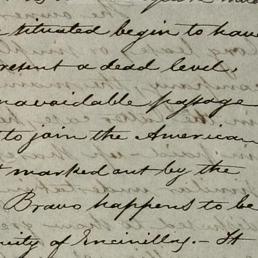 situated begin to have
resent a dead level,
navoidable passage
to join the American
t marked out by the
Bravo happens to be
nity of Encinillas. - It